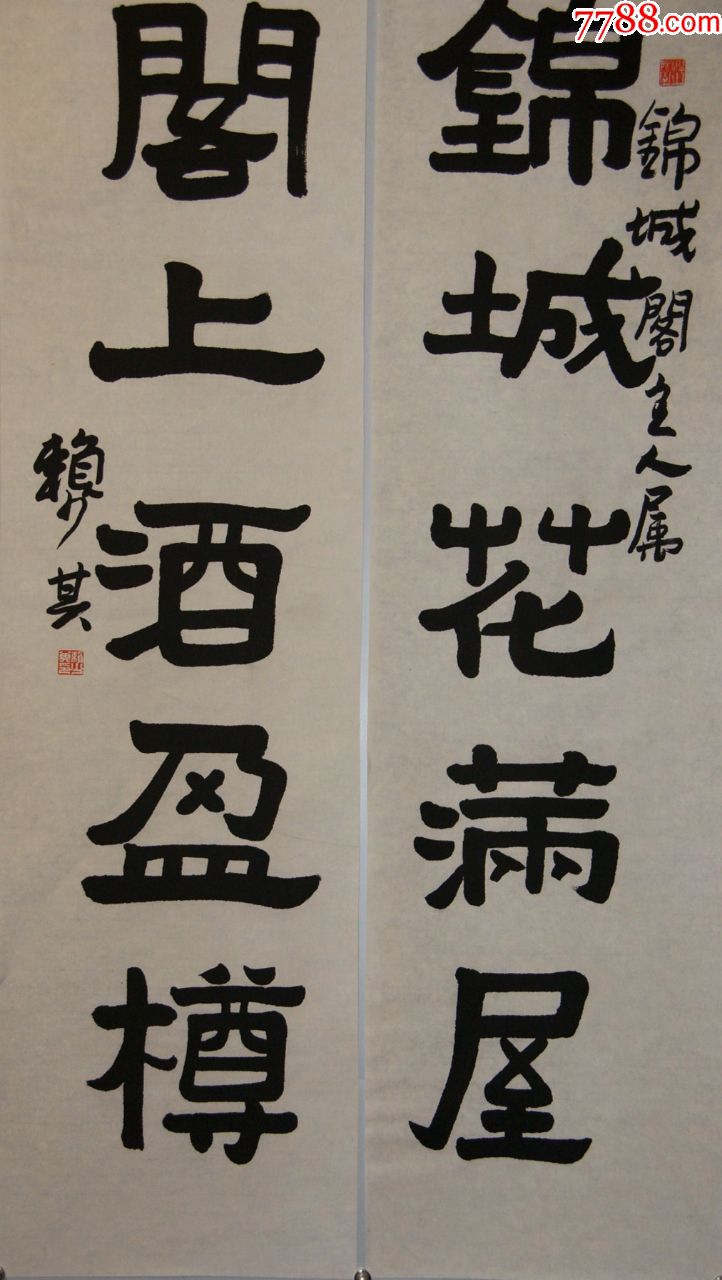 7788.com
錦城閣主人属
錦城花滿屋
閣上酒盈樽
賴少其